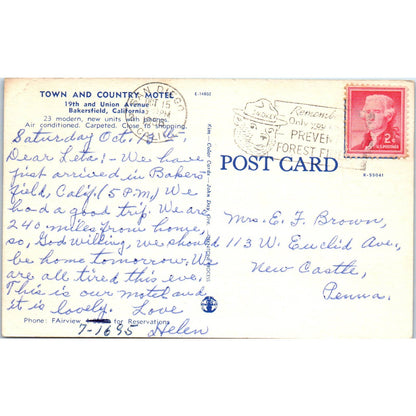 TOWN AND COUNTRY MOTEL
19th and Union Avenue
Bakersfield, California
23 modern, new units with phones.
Air conditioned. Carpeted. Close to shopping.
Saturday Oct. 13
Dear Leta:- We have
just arrived in Bakers-
field, Calif. (5 P.M.) We
had a good trip. We are
240 miles from home,
so, God willing, we should
be home tomorrow. We
are all tired this eve.
This is our motel and
it is lovely. Love
Helen
Phone: FAirview for Reservations
7-1695
E-14802
SAN DIEGO
CALIF.
SMOKEY
Remember
Only you
PREVENT
FOREST
2¢
POST CARD
K-55041
Mrs. E. F. Brown,
113 W. Euclid Ave,
New Castle,
Penna.